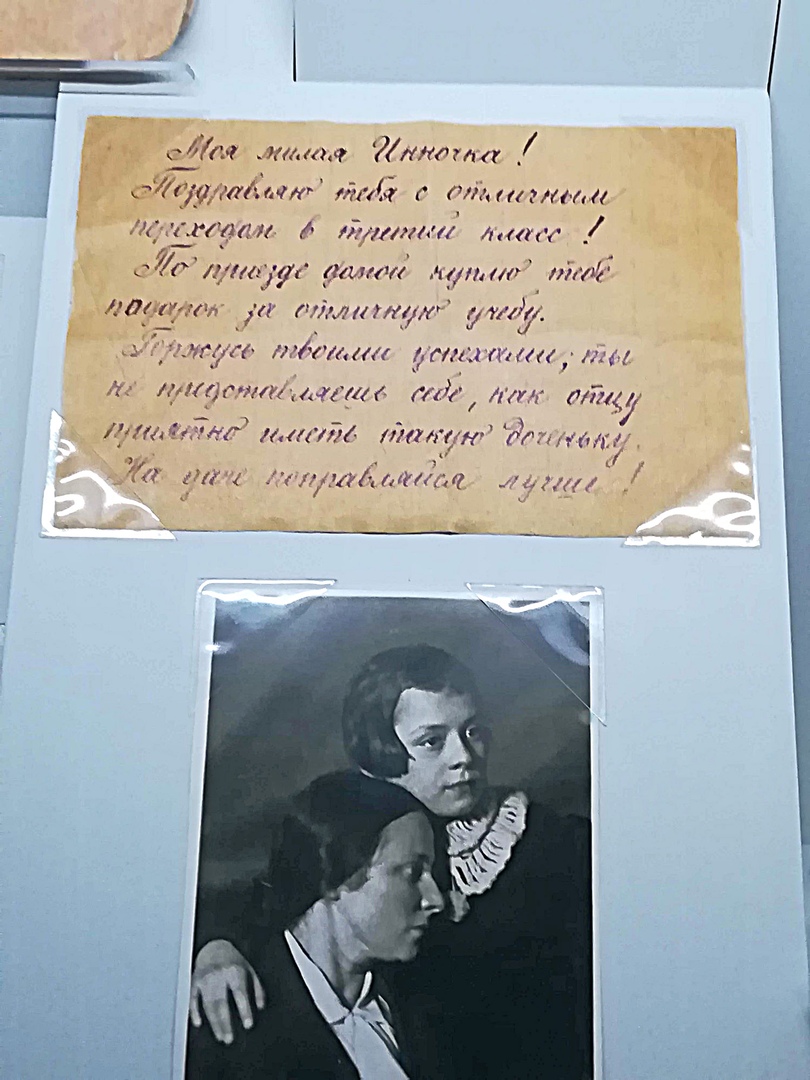 Моя милая Инночка!
Поздравляю тебя с отличным
переходом в третий класс!
По приезде домой куплю тебе
подарок за отличную учебу.
Горжусь твоими успехами; ты
не представляешь себе, как отцу
приятно иметь такую доченьку.
На даче поправляйся лучше!